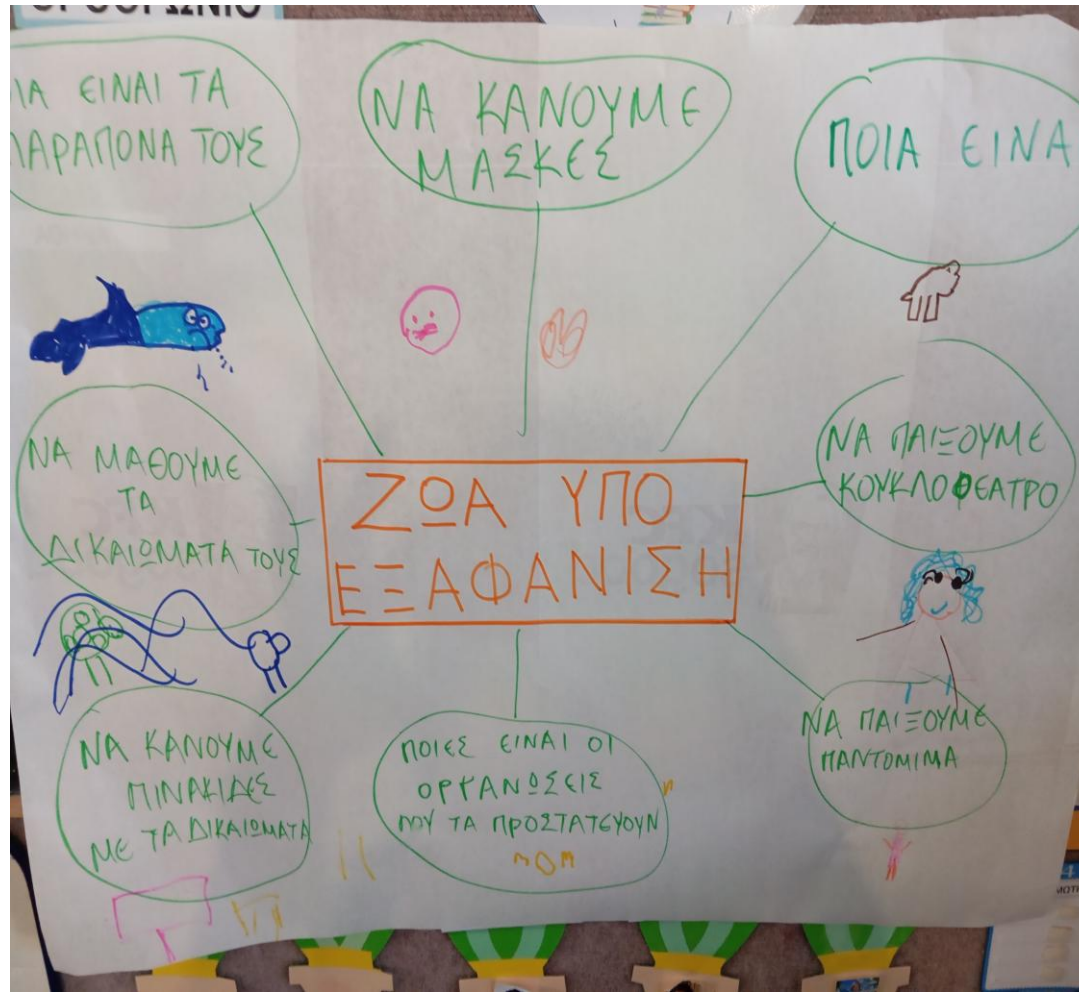 ΙΑ ΕΙΝΑΙ ΤΑ
ΠΑΡΑΠΟΝΑ ΤΟΥΣ
ΝΑ ΚΑΝΟΥΜΕ
ΜΑΣΚΕΣ
ΠΟΙΑ ΕΙΝΑ
ΝΑ ΜΑΘΟΥΜΕ
ΤΑ
ΔΙΚΑΙΩΜΑΤΑ ΤΟΥΣ
ΖΩΑ ΥΠΟ
ΕΞΑΦΑΝΙΣΗ
ΝΑ ΠΑΙΞΟΥΜΕ
ΚΟΥΚΛΟΘΕΑΤΡΟ
ΝΑ ΚΑΝΟΥΜΕ
ΠΙΝΑΚΙΔΕΣ
ΜΕ ΤΑ ΔΙΚΑΙΩΜΑΤΑ
ΠΟΙΕΣ ΕΙΝΑΙ ΟΙ
ΟΡΓΑΝΩΣΕΙΣ
ΠΟΥ ΤΑ ΠΡΟΣΤΑΤΕΥΟΥΝ
ΝΑ ΠΑΙΞΟΥΜΕ
ΠΑΝΤΟΜΙΜΑ